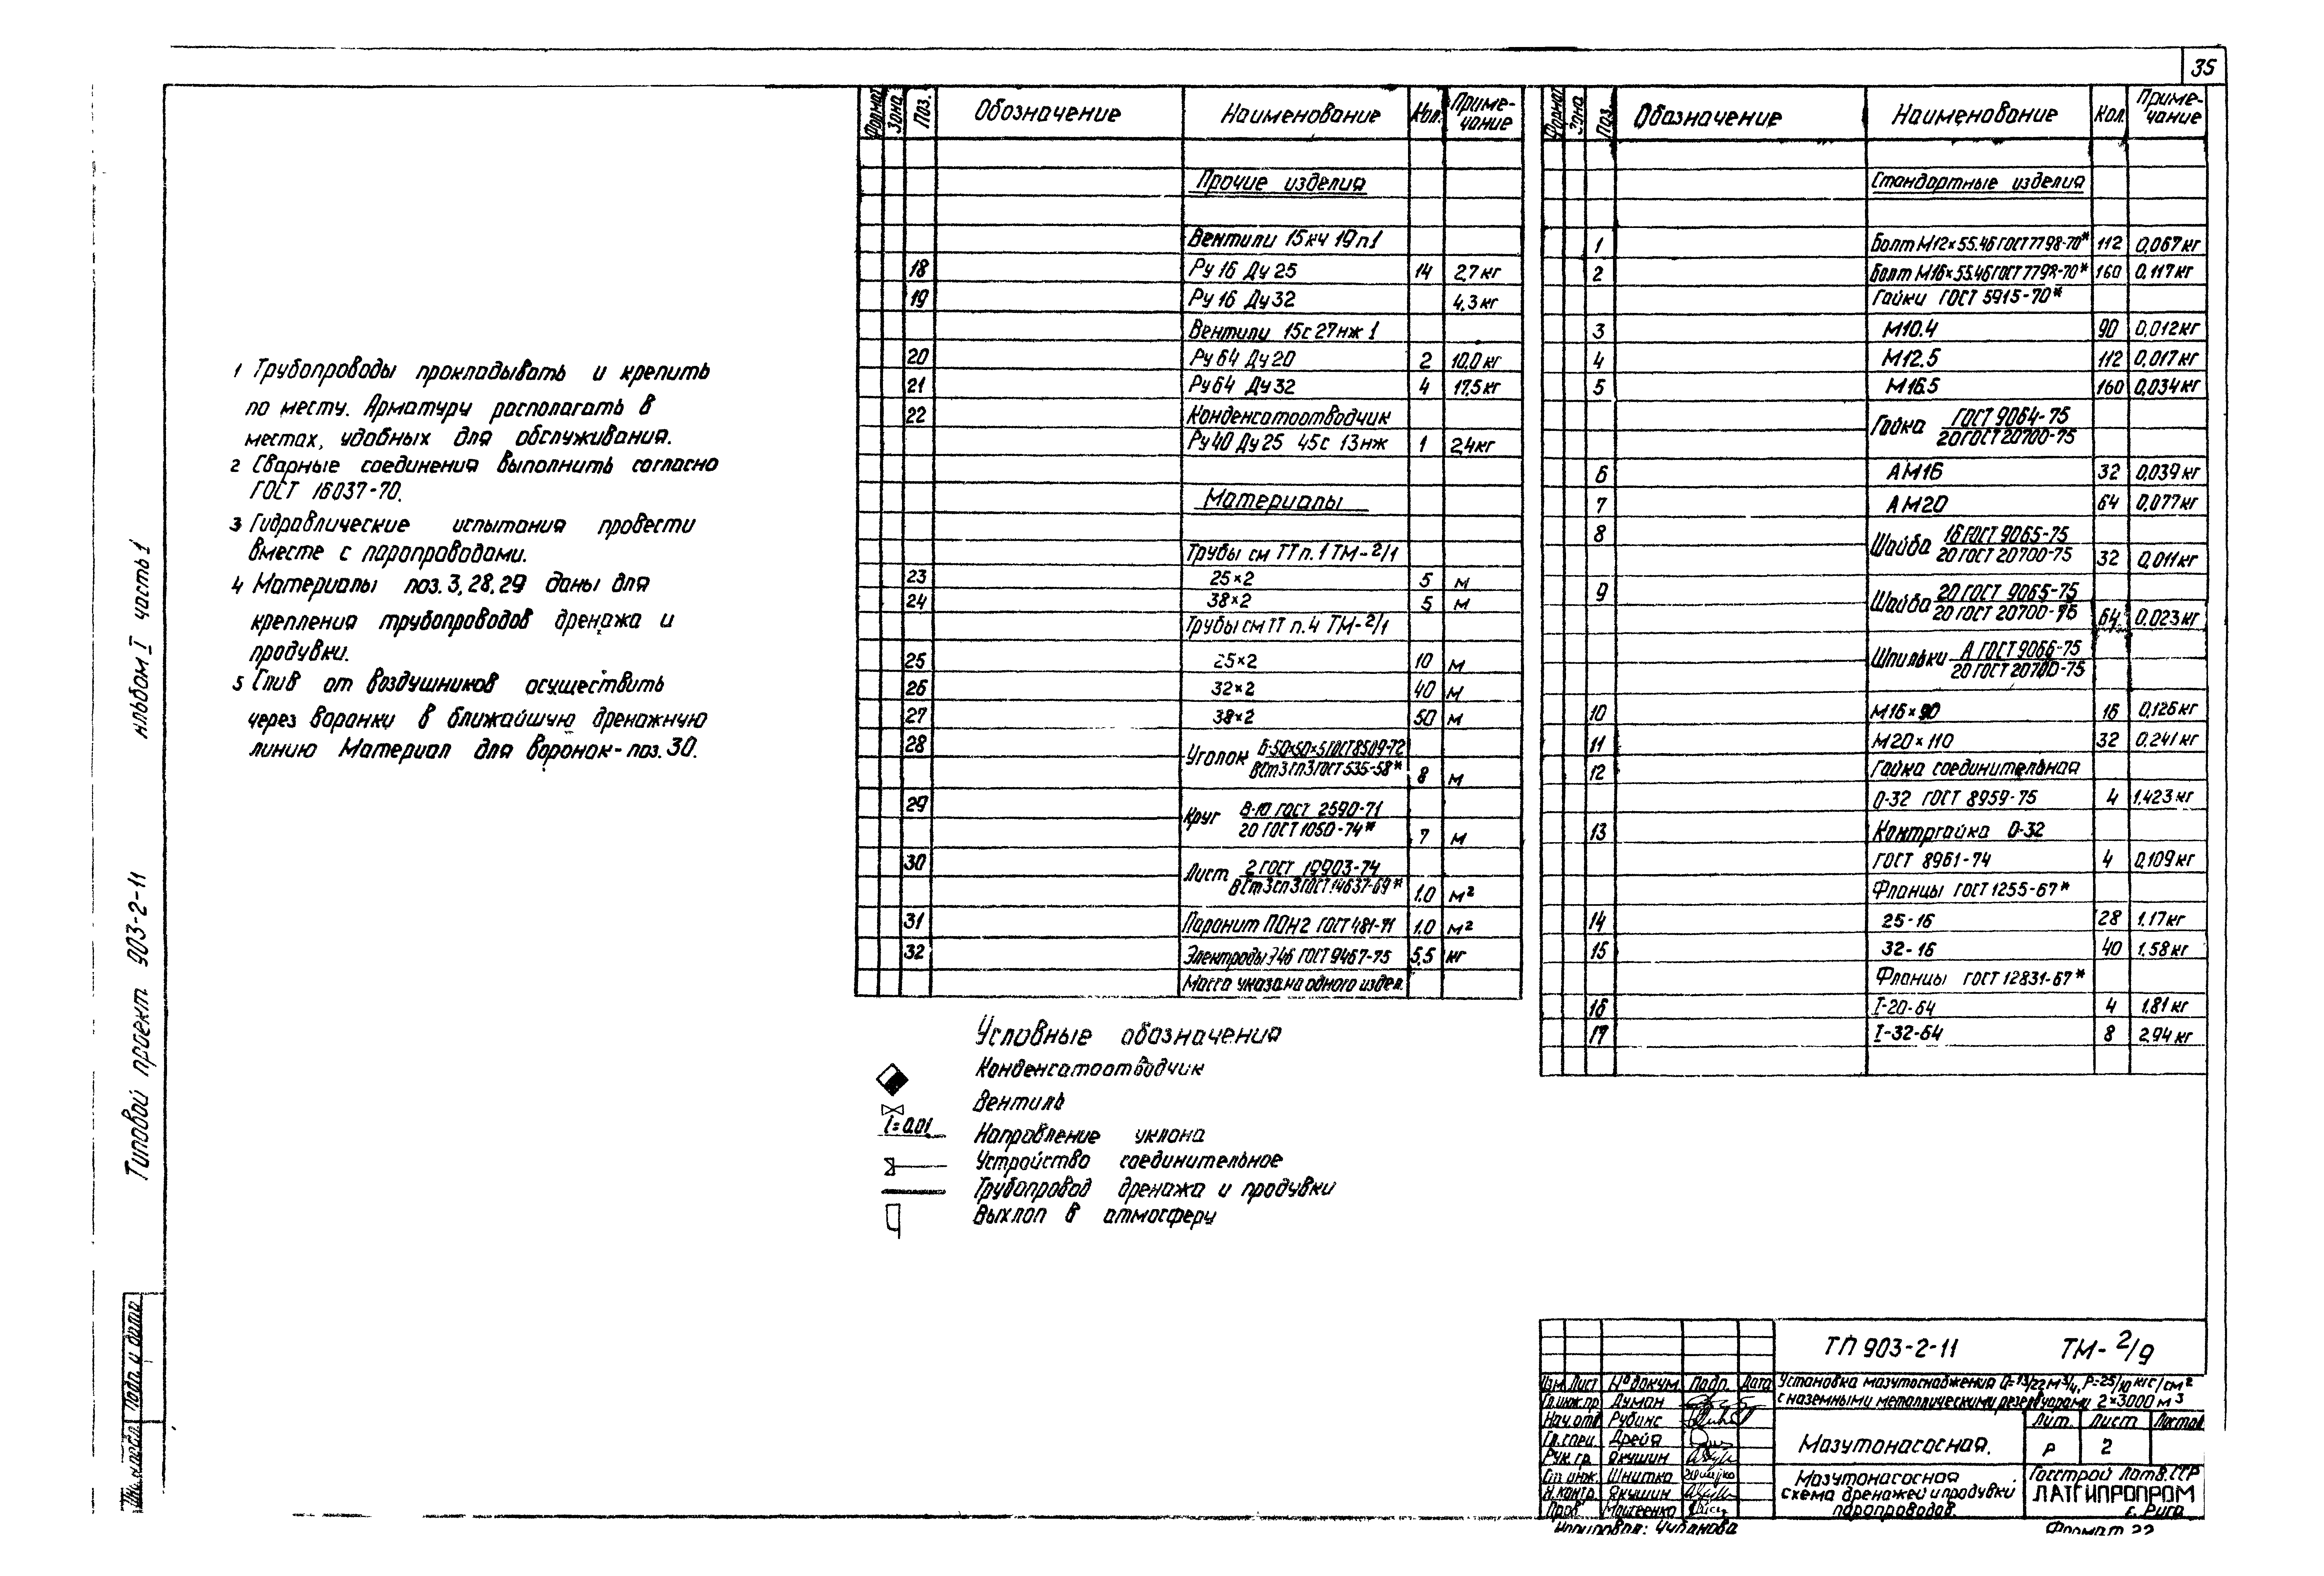 35
Альбом I часть 1
Типовой проект 903-2-11
Подп. и дата
1 Трубопроводы прокладывать и крепить
по месту. Арматуру располагать в
местах, удобных для обслуживания.
2 Сварные соединения выполнить согласно
ГОСТ 16037-70.
3 Гидравлические испытания провести
вместе с паропроводами.
4 Материалы поз. 3, 28, 29 даны для
крепления трубопроводов дренажа и
продувки.
5 Слив от воздушников осуществить
через воронки в ближайшую дренажную
линию Материал для воронок - поз. 30.
Формат Зона Поз. Обозначение Наименование Кол. Приме-
чание
Прочие изделия
Вентили 15кч 19п1
18 Ру 16 Ду 25 14 2,7 кг
19 Ру 16 Ду 32 4,3 кг
Вентили 15с27нж 1
20 Ру 64 Ду 20 2 10,0 кг
21 Ру 64 Ду 32 4 17,5 кг
22 Конденсатоотводчик
Ру 40 Ду 25 45с 13нж 1 2,4 кг
Материалы
Трубы см ТТ п. 1 ТМ-2/1
23 25×2 5 м
24 38×2 5 м
Трубы см ТТ п. 4 ТМ-2/1
25 25×2 10 м
26 32×2 40 м
27 38×2 50 м
28 Уголок Б-50×50×5 ГОСТ 8509-72
ВСт3 сп3 ГОСТ 535-58* 8 м
29 Круг В-10 ГОСТ 2590-71
20 ГОСТ 1050-74* 7 м
30 Лист 2 ГОСТ 19903-74
ВСт3сп3 ГОСТ 14637-69* 1.0 м²
31 Паронит ПОН2 ГОСТ 481-71 1.0 м²
32 Электроды Э46 ГОСТ 9467-75 5,5 кг
Масса указана одного издел.
Формат Зона Поз. Обозначение Наименование Кол. Приме-
чание
Стандартные изделия
1 Болт М12×55.46 ГОСТ 7798-70* 112 0,067 кг
2 Болт М16×55.46 ГОСТ 7798-70* 160 0,117 кг
Гайки ГОСТ 5915-70*
3 М10.4 90 0,012 кг
4 М12.5 112 0,017 кг
5 М16.5 160 0,034 кг
Гайка ГОСТ 9064-75
20 ГОСТ 20700-75
6 АМ16 32 0,039 кг
7 АМ20 64 0,077 кг
8 Шайба 16 ГОСТ 9065-75
20 ГОСТ 20700-75 32 0,011 кг
9 Шайба 20 ГОСТ 9065-75
20 ГОСТ 20700-75 64 0.023 кг
Шпильки А ГОСТ 9066-75
20 ГОСТ 20700-75
10 М16×90 16 0,126 кг
11 М20×110 32 0,241 кг
12 Гайка соединительная
О-32 ГОСТ 8959-75 4 1.423 кг
13 Контргайка О-32
ГОСТ 8961-74 4 0,109 кг
Фланцы ГОСТ 1255-67*
14 25-16 28 1.17 кг
15 32-16 40 1.58 кг
Фланцы ГОСТ 12831-67*
16 I-20-64 4 1.81 кг
17 I-32-64 8 2.94 кг
Условные обозначения
Конденсатоотводчик
Вентиль
i=0.01 Направление уклона
Устройство соединительное
Трубопровод дренажа и продувки
Выхлоп в атмосферу
ТП 903-2-11 ТМ-2/9
Изм. Лист № докум. Подп. Дата
Установка мазутоснабжения Q=13/22 м³/ч, Р=25/10 кгс/см²
с наземными металлическими резервуарами 2×3000 м³
Гл. инж. пр Думан
Нач. отд Рубинс
Гл. спец. Дрейя
Рук. гр. Якушин
Ст. инж. Шнитко
Н. контр. Якушин
Пров. Матвеенко
Мазутонасосная.
Лит. Лист Листов
Р 2
Мазутонасосная
схема дренажей и продувки
паропроводов.
Госстрой Латв. ССР
ЛАТГИПРОПРОМ
г. Рига
Копировал: Чубанова
Формат 22